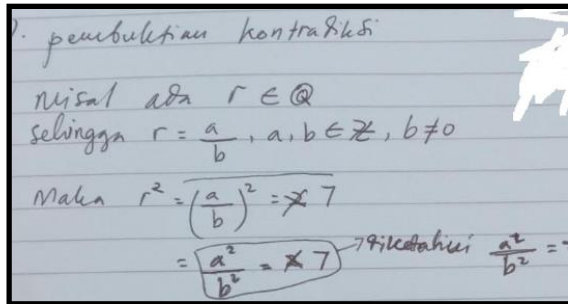 ). pembuktian kontradiksi
misal ada r ∈ ℚ
sehingga r = a/b, a, b ∈ ℤ, b ≠ 0
Maka r² = (a/b)² = 7
= a²/b² = 7 → diketahui a²/b² =